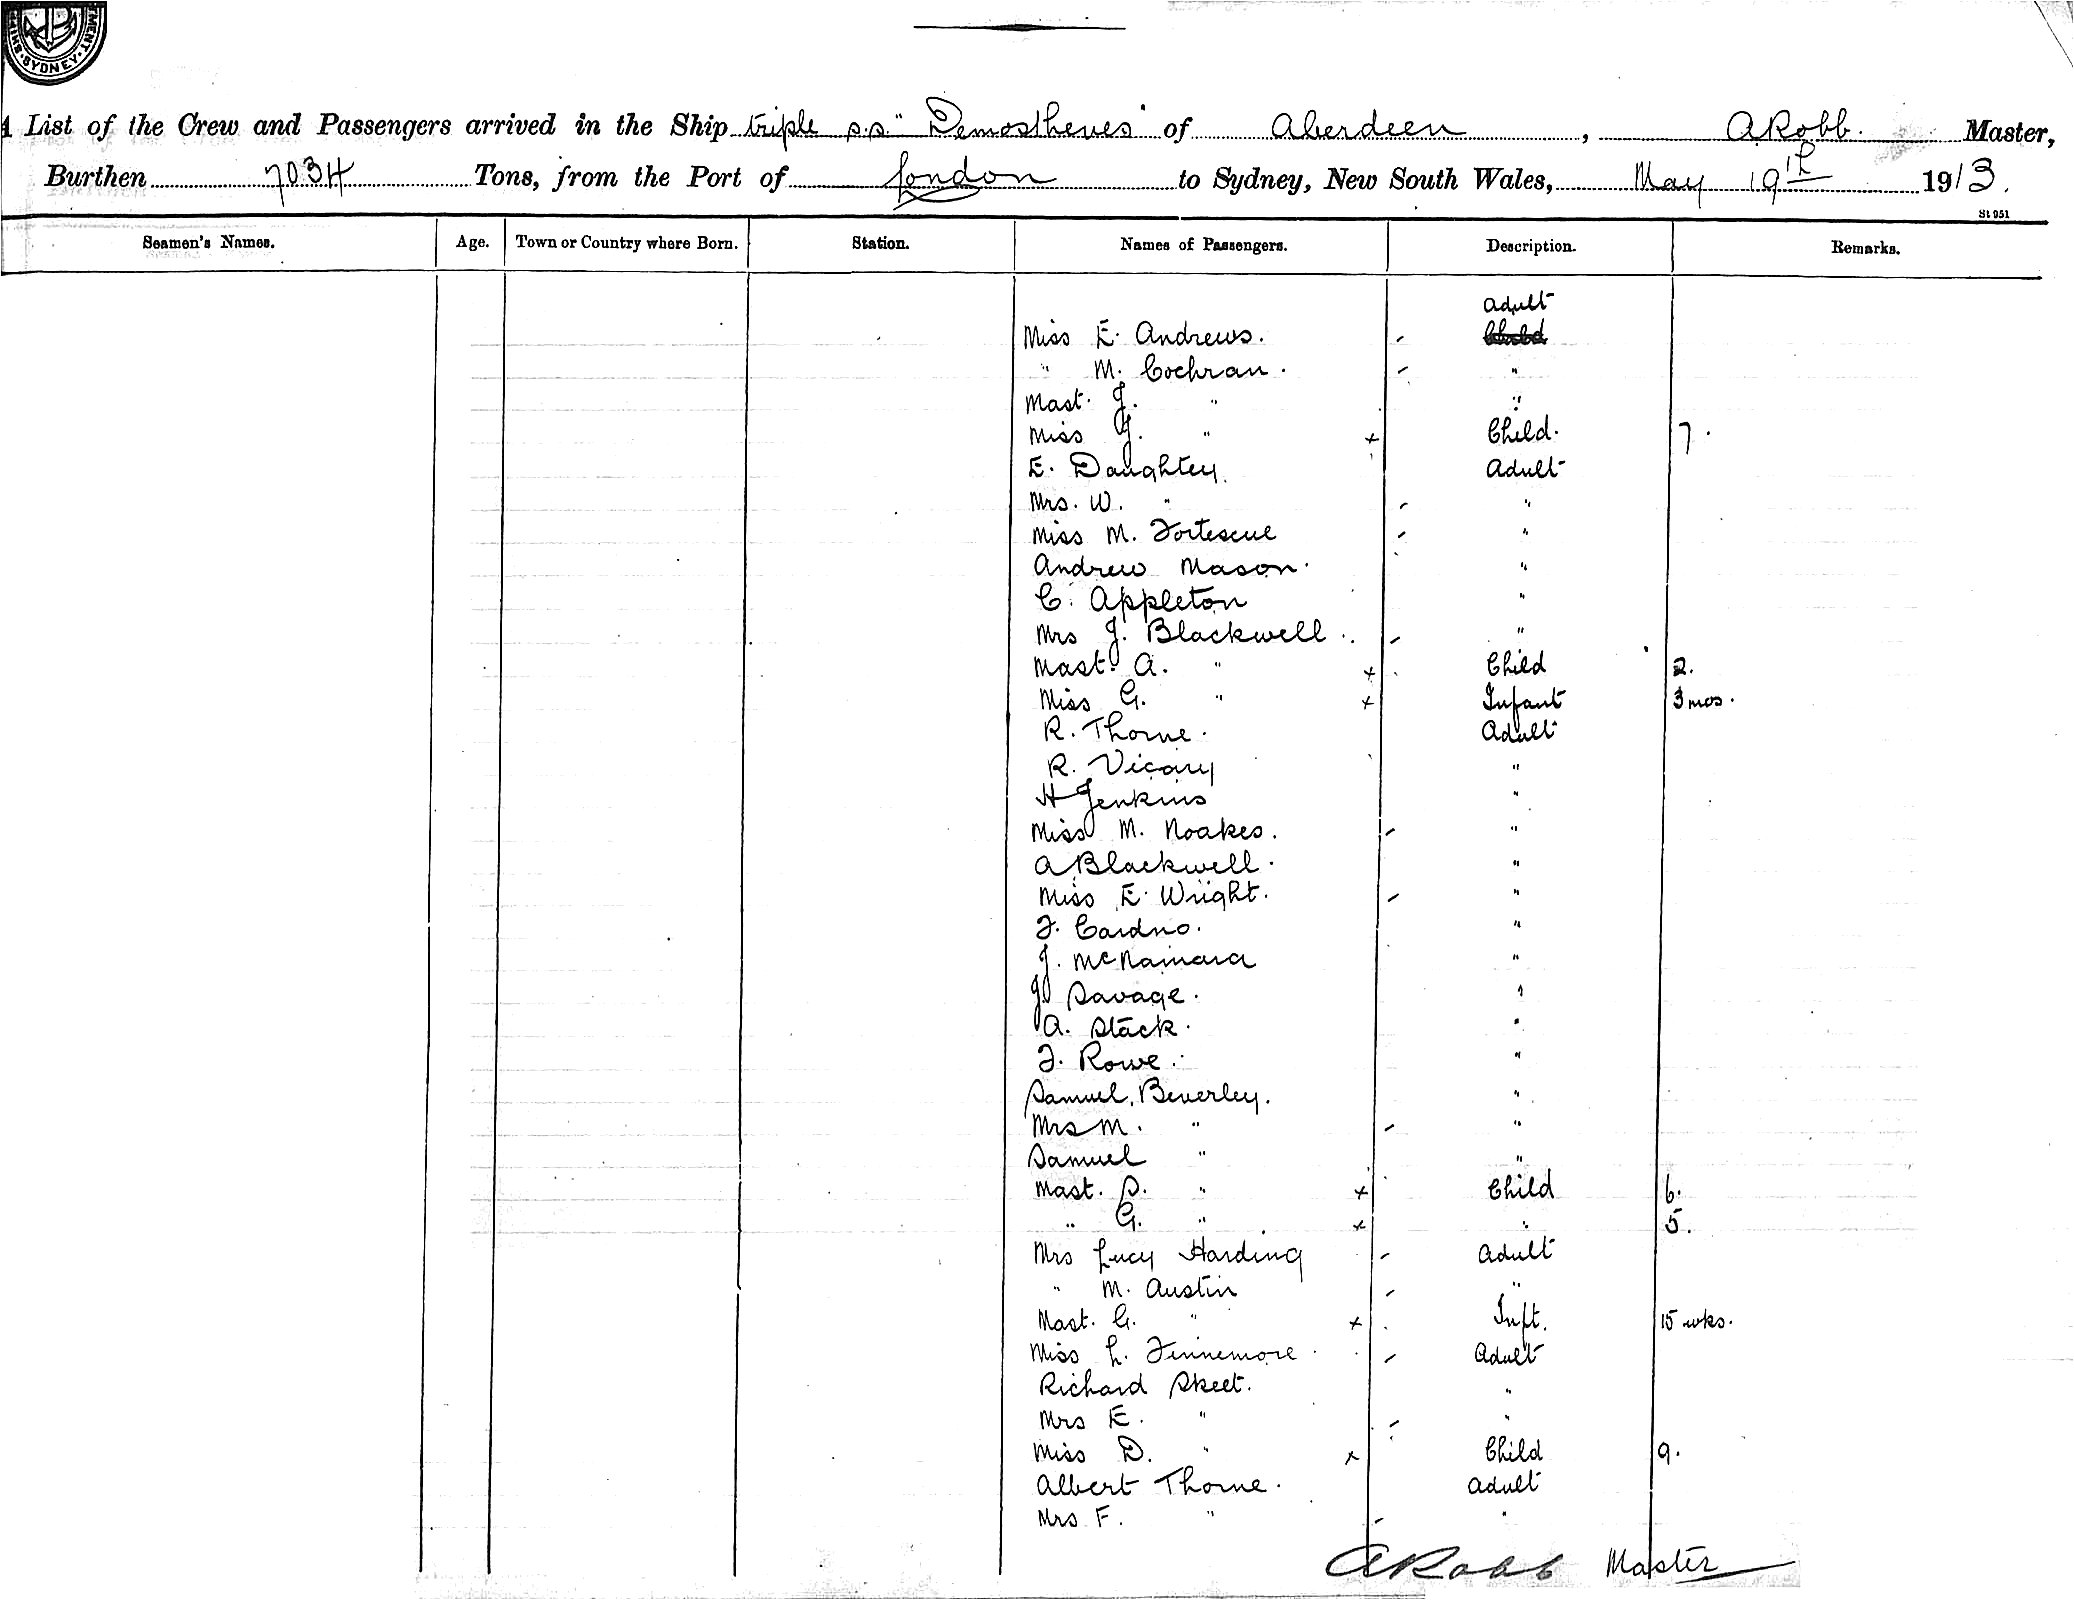 SYDNEY
A List of the Crew and Passengers arrived in the Ship triple s.s. "Demosthenes" of Aberdeen, A Robb. Master,
Burthen 7034 Tons, from the Port of London to Sydney, New South Wales, May 19th 1913.
St 951
Seamen's Names. Age. Town or Country where Born. Station. Names of Passengers. Description. Remarks.
Adult
Miss E. Andrews. - Child
" M. Cochran. - "
Mast. J. " "
Miss J. " x Child. 7.
E. Daughtey. Adult
Mrs. W. " - "
Miss M. Fortescue - "
Andrew Mason. "
C. Appleton "
Mrs J. Blackwell. - "
Mast. A. " x Child 2.
Miss G. " x Infant 3 mos.
R. Thorne. Adult
R. Vicary "
H Jenkins "
Miss M. Noakes. - "
A Blackwell. "
Miss E. Wright. - "
F. Cardno. "
J. McNamara "
J. Savage. "
A. Stack. "
F. Rowe. "
Samuel Beverley. "
Mrs M. " - "
Samuel " "
Mast. S. " x Child 6.
" G. " x " 5.
Mrs Lucy Harding - Adult
" M. Austin - "
Mast. G. " x Inft. 15 wks.
Miss L. Finnemore - Adult
Richard Skeet. "
Mrs E. " - "
Miss D. " x Child 9.
Albert Thorne. Adult
Mrs F. " - "
A Robb Master